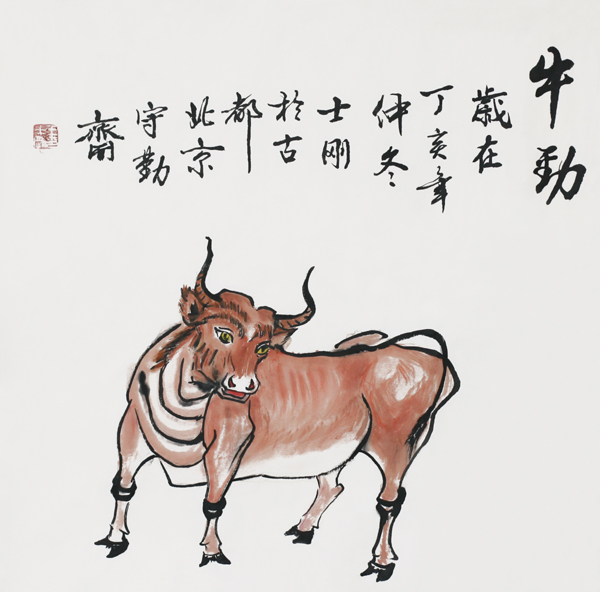 牛劲
歲在
丁亥年
仲冬
士刚
於古
都
北京
守勤
齋